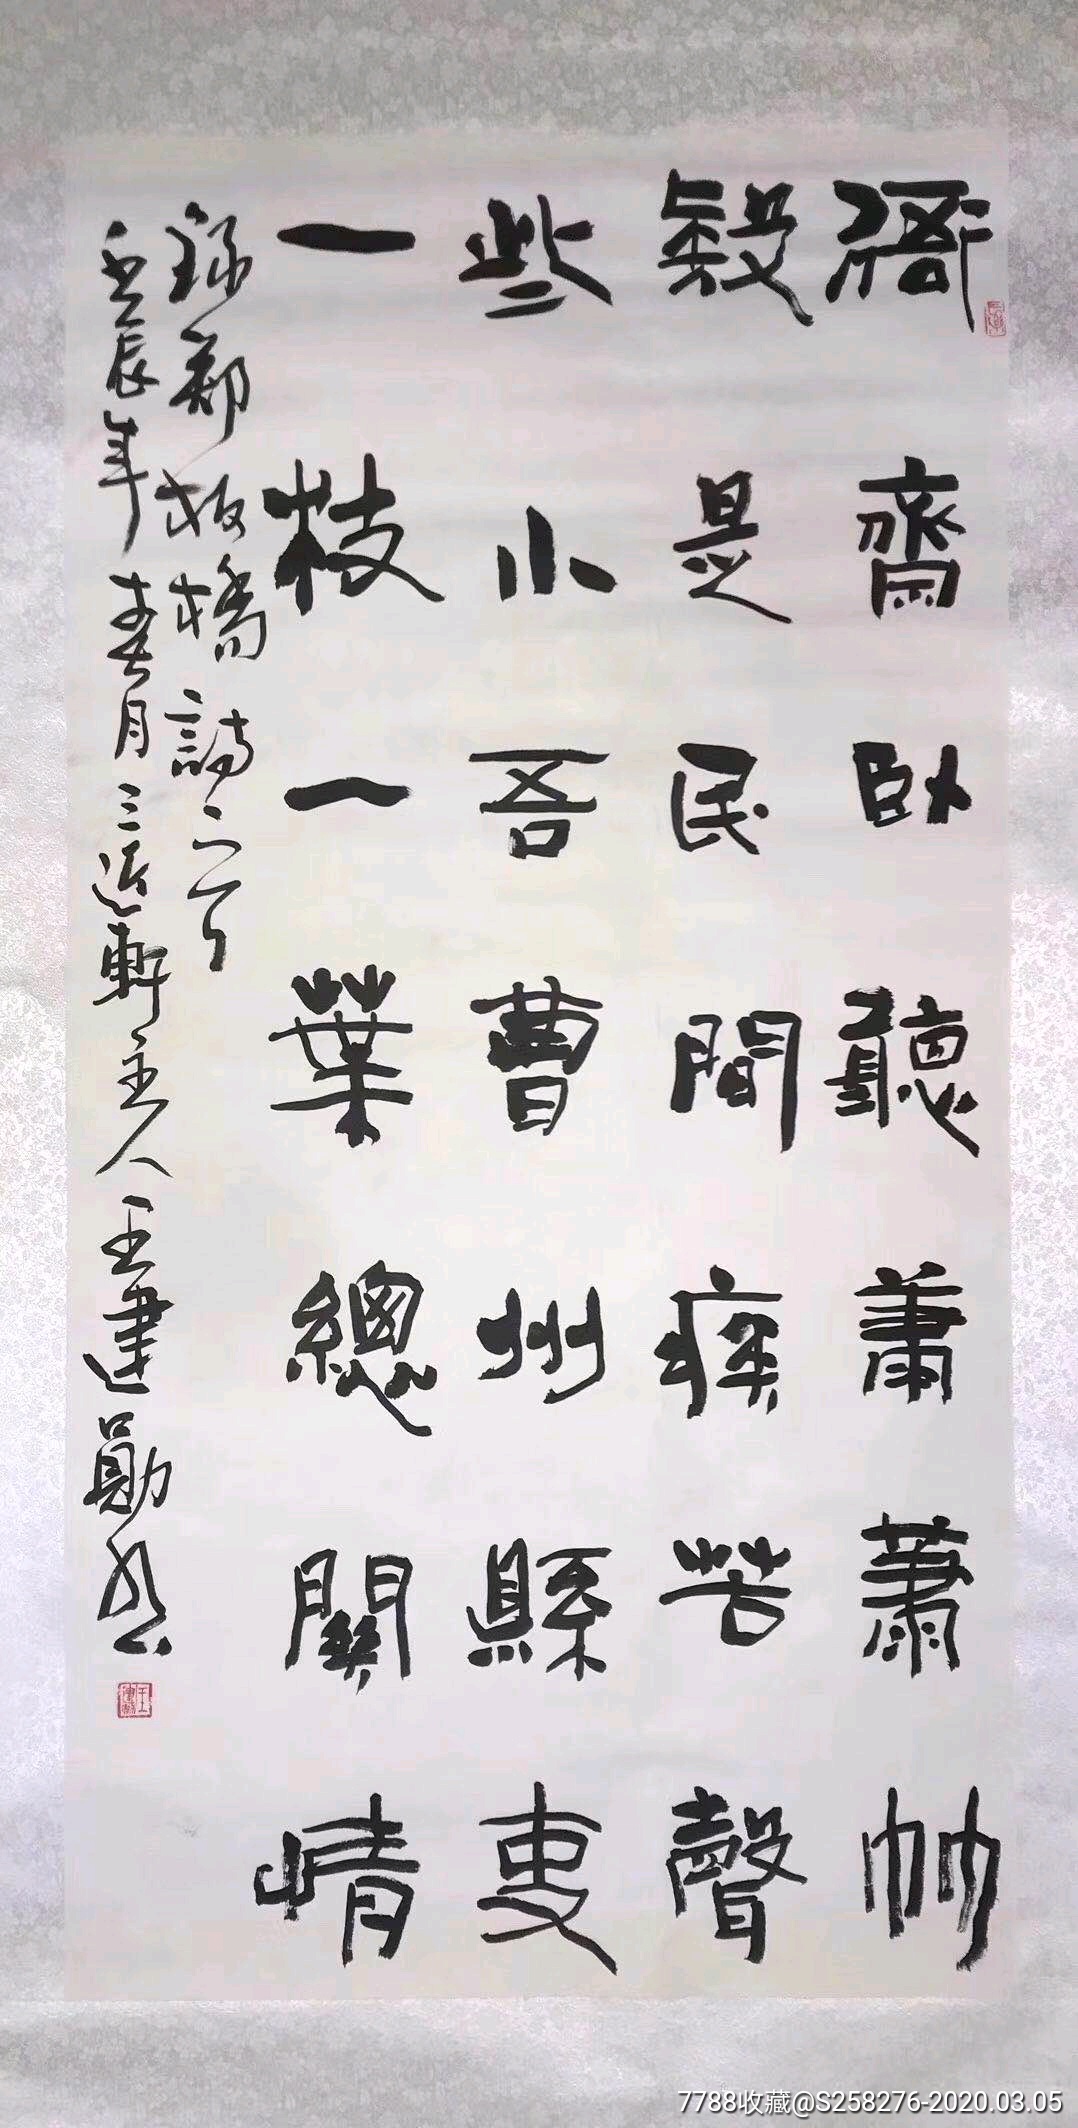 衙齋卧聽蕭蕭竹
疑是民間疾苦聲
些小吾曹州縣吏
一枝一葉總關情
錄鄭板橋詩一首
壬辰年春月三近軒主人王建勛書
7788收藏@S258276-2020.03.05